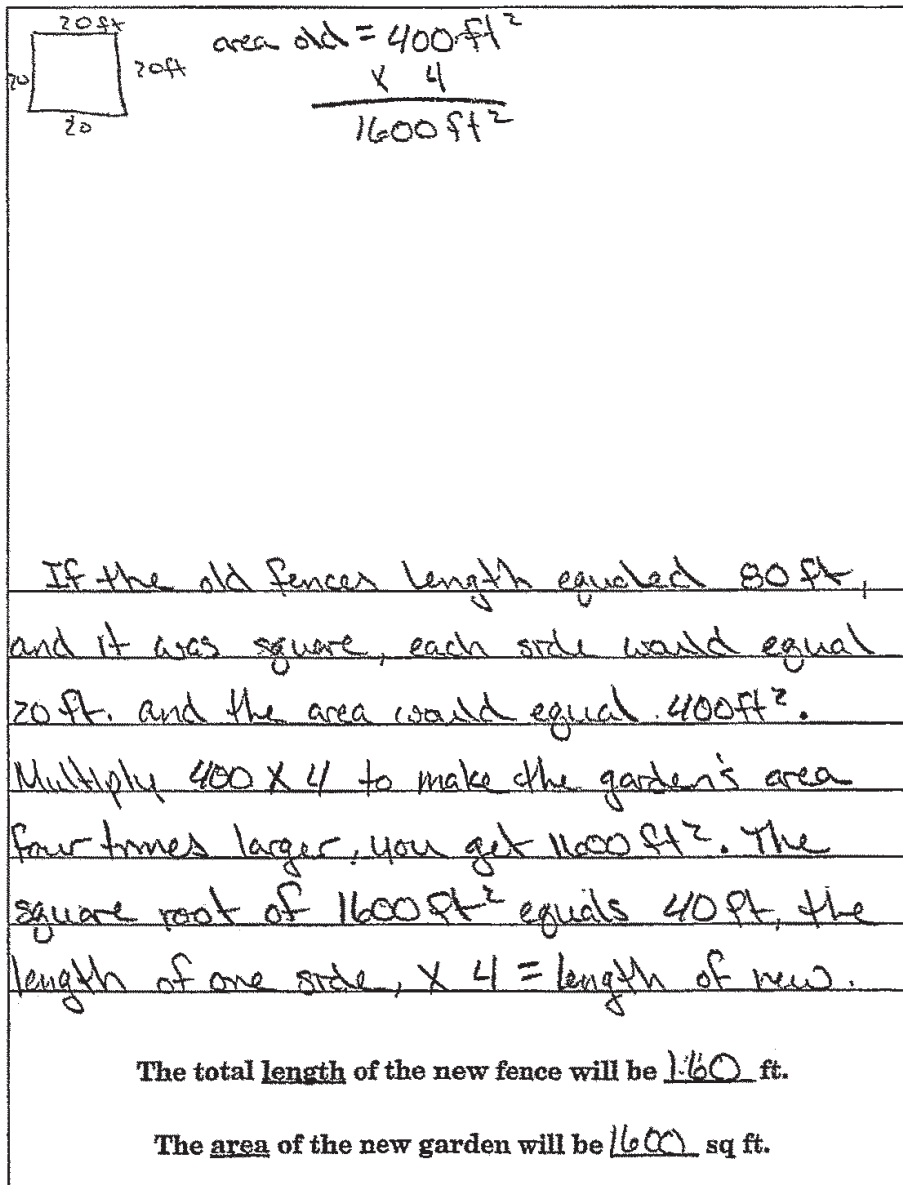 20 ft
area old = 400 ft²
20
20 ft
x 4
20
1600 ft²
If the old fences length equaled 80 ft,
and it was square, each side would equal
20 ft. and the area would equal 400 ft².
Multiply 400 x 4 to make the garden's area
four times larger, you get 1600 ft². The
square root of 1600 ft² equals 40 ft, the
length of one side, x 4 = length of new.
The total length of the new fence will be 160 ft.
The area of the new garden will be 1600 sq ft.